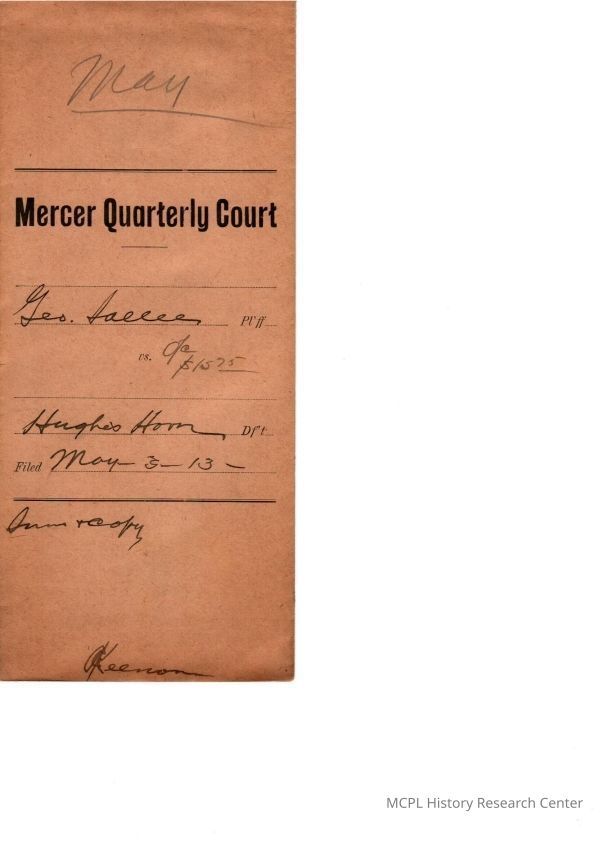 May
Mercer Quarterly Court
Geo. Sallee Pl'ff
vs. o/c
$15 75
Hughes Horn Df't
Filed May - 3 - 13 -
Sum & Copy
Keenon
MCPL History Research Center